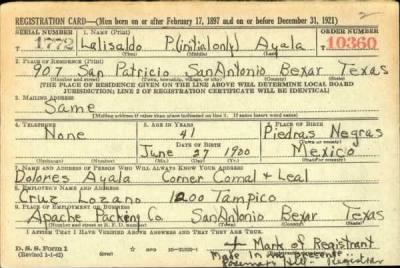 REGISTRATION CARD—(Men born on or after February 17, 1897 and on or before December 31, 1921)
SERIAL NUMBER 1. NAME (Print) ORDER NUMBER
T 1772 Lalisaldo P.(initial only) Ayala 10360
(First) (Middle) (Last)
2. PLACE OF RESIDENCE (Print)
907 San Patricio San Antonio Bexar Texas
(Number and street) (Town, township, village, or city) (County) (State)
[THE PLACE OF RESIDENCE GIVEN ON THE LINE ABOVE WILL DETERMINE LOCAL BOARD
JURISDICTION; LINE 2 OF REGISTRATION CERTIFICATE WILL BE IDENTICAL]
3. MAILING ADDRESS
Same
[Mailing address if other than place indicated on line 2. If same insert word same]
4. TELEPHONE 5. AGE IN YEARS 6. PLACE OF BIRTH
None 41 Piedras Negras
DATE OF BIRTH (Town or county)
June 27 1900 Mexico
(Mo.) (Day) (Yr.) (State or country)
7. NAME AND ADDRESS OF PERSON WHO WILL ALWAYS KNOW YOUR ADDRESS
Dolores Ayala Corner Comal & Leal
8. EMPLOYER'S NAME AND ADDRESS
Cruz Lozano 1200 Tampico
9. PLACE OF EMPLOYMENT OR BUSINESS
Apache Packing Co. San Antonio Bexar Texas
(Number and street or R. F. D. number) (Town) (County) (State)
I AFFIRM THAT I HAVE VERIFIED ABOVE ANSWERS AND THAT THEY ARE TRUE.
D. S. S. Form 1 GPO + Mark of Registrant
(Revised 1-1-42) Made in my presence
Registrar